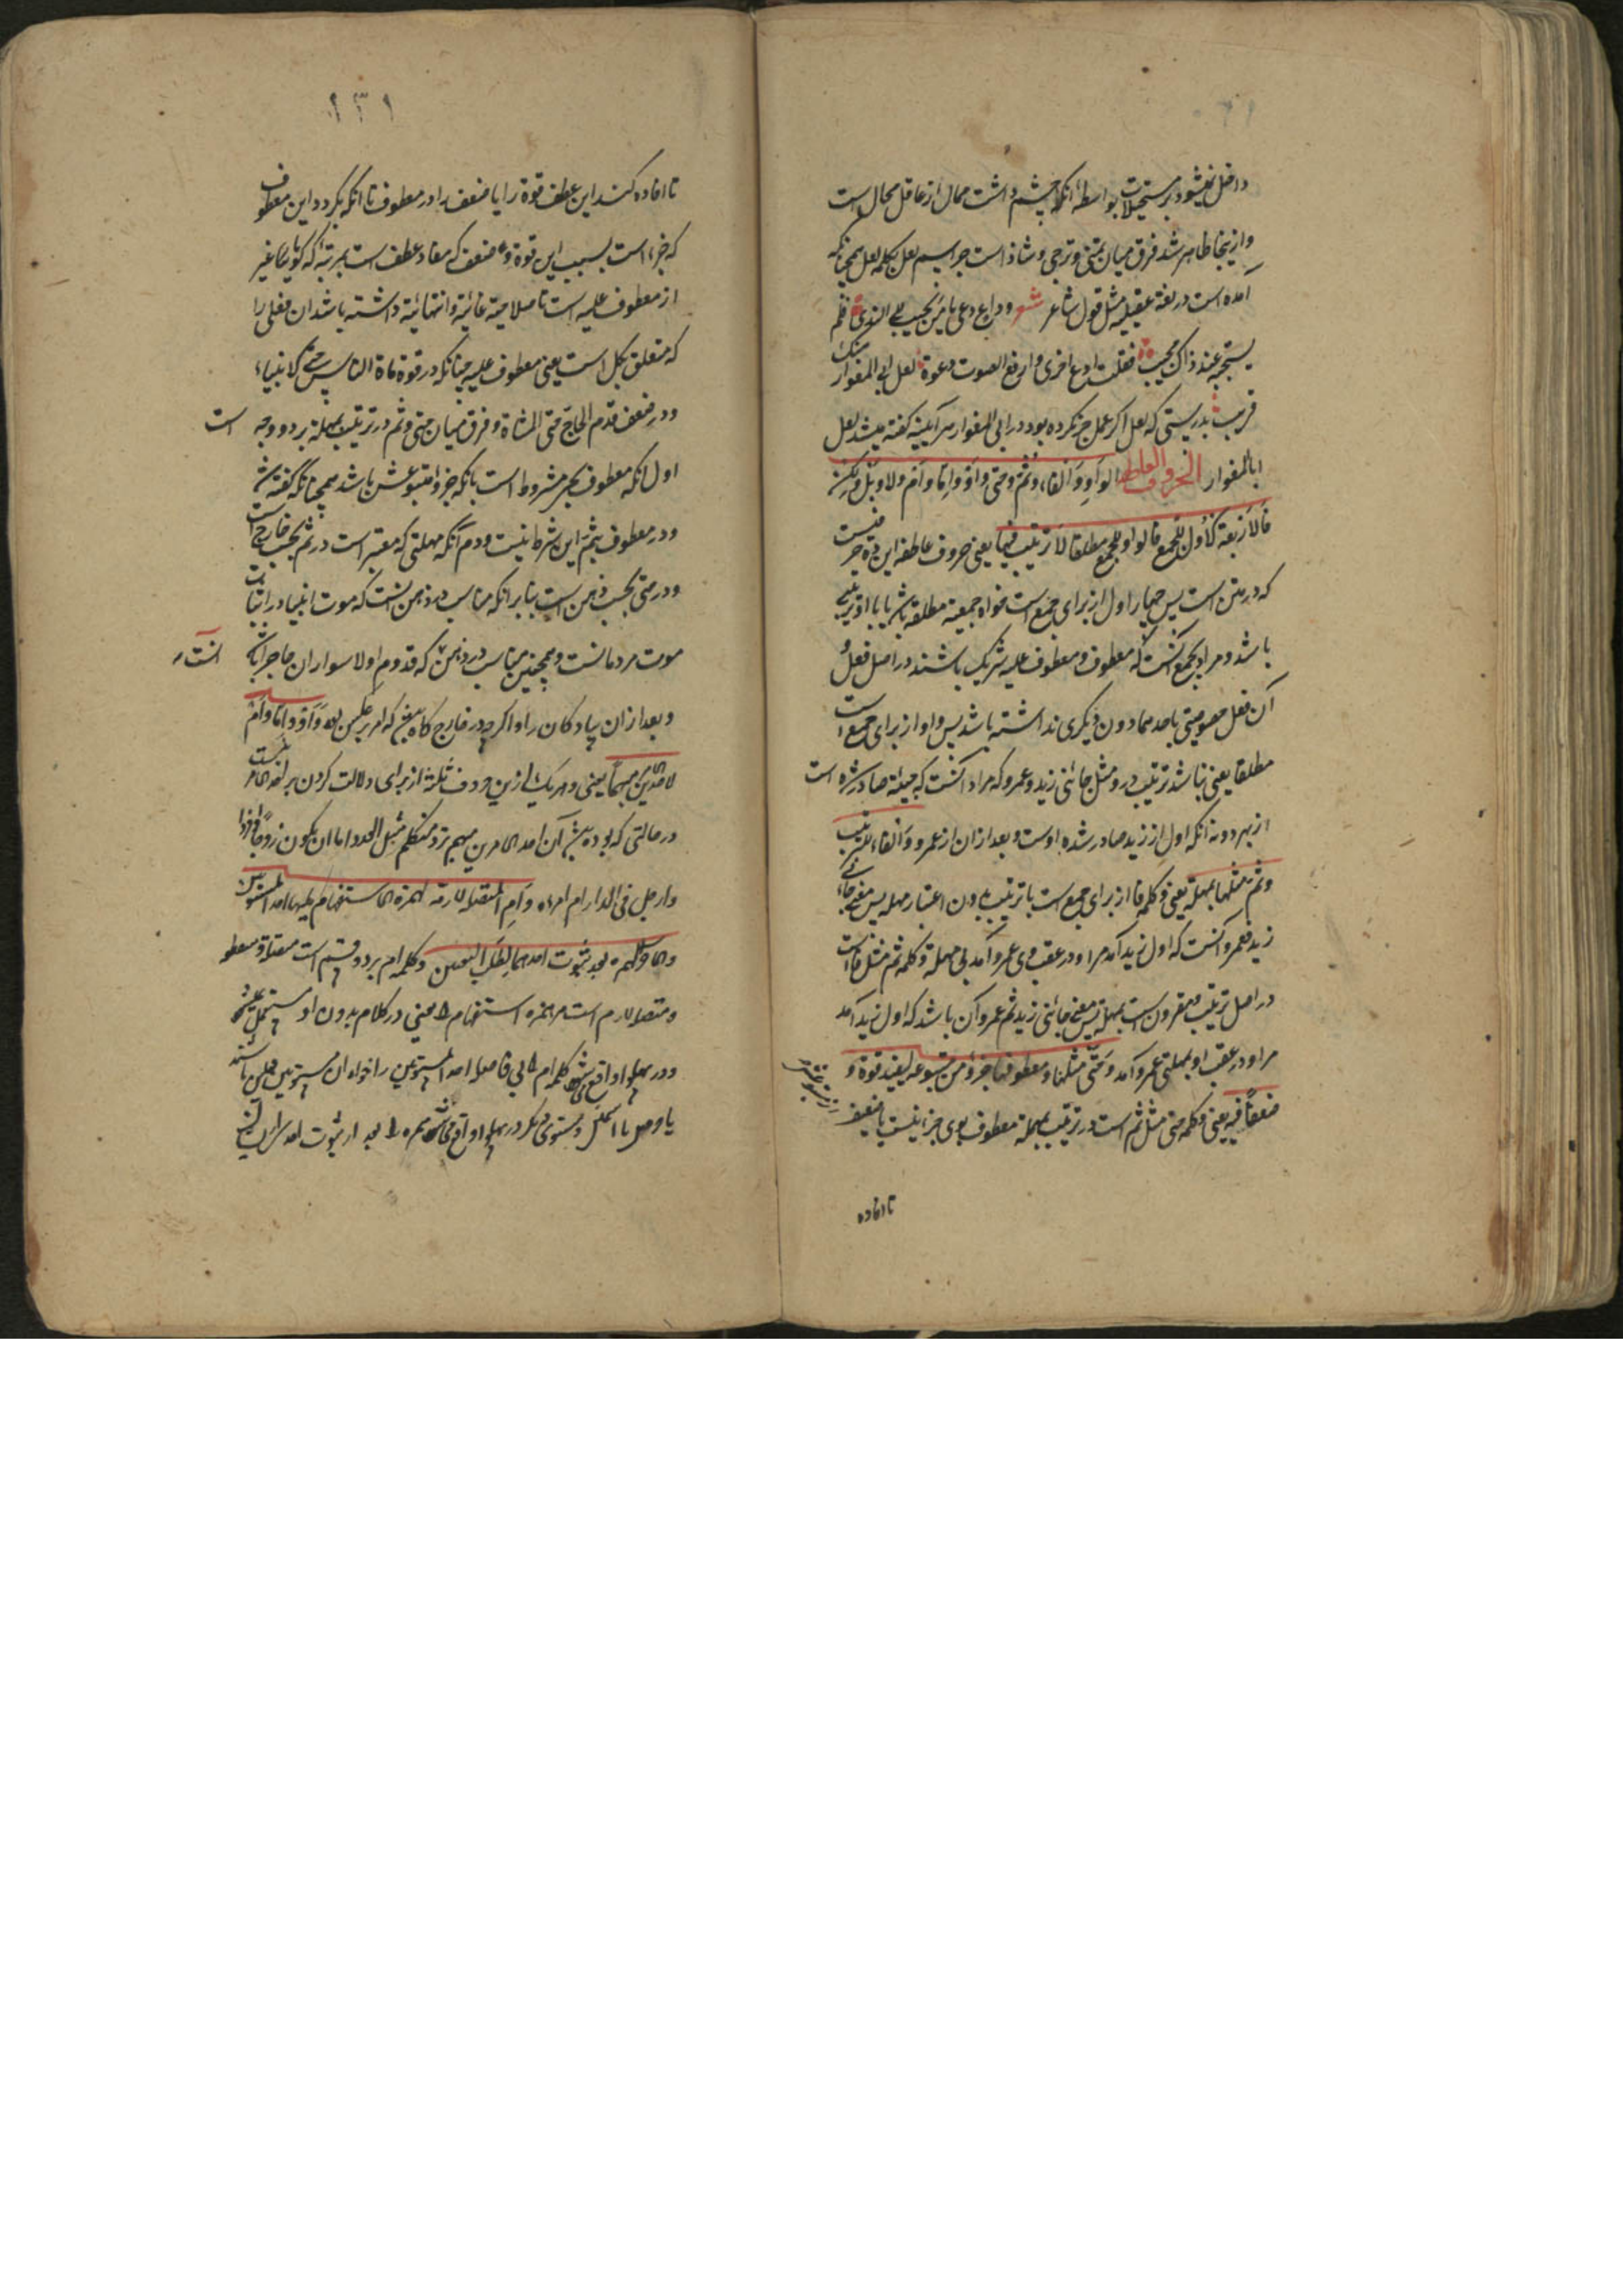 داخل نمیشود بر مستحیلات بواسطه آنکه چشم داشت محال از عاقل محال است
و ازینجا ظاهر شد فرق میان تمنی و ترجی و شاذ است جر اسم لعل بکلمه لعل همچنانکه
آمده است در لغة عقیلیه مثل قول شاعر شعر وداع دعی یا من یجیب الی الندی فلم
یستجبه عند ذاک مجیب فقلت ادع اخری و ارفع الصوت دعوة لعل ابی المغوار منک
قریب بدرستی که لعل اگر عمل جر نکرده بود در ابی المغوار هر آیینه گفته میشد لعل
ابا المغوار الحروف العاطفه الواو و الفاء و ثم و حتی و او و اما و ام و لا و بل و لکن
فالاربعة الاول للجمع فالواو للجمع مطلقا لا ترتیب فیها یعنی حروف عاطفه این ده حرفیست
که در متن است پس چهار اول از برای جمع است خواه جمعیة مطلقه باشد یا با او ترتیبی
باشد و مراد بجمع آنست که معطوف و معطوف علیه شریک باشند در اصل فعل و
آن فعل خصوصیتی باحدهما دون دیگری نداشته باشد پس واو از برای جمع است
مطلقا یعنی نباشد ترتیب درو مثل جائنی زید و عمرو که مراد آنست که جیئة صادر شده است
از هر دو نه آنکه اول از زید صادر شده است و بعد از آن از عمرو و الفاء للترتیب
و ثم مثلها بمهلة یعنی و کلمه فا از برای جمع است با ترتیب بدون اعتبار مهله پس معنی جائنی
زید فعمرو آنست که اول زید آمد مرا و در عقب وی عمرو آمد بی مهلة و کلمه ثم مثل فا است
در اصل ترتیب و مقرون است بمهلة پس معنی جائنی زید ثم عمرو آن باشد که اول زید آمد
مرا و در عقب او بمهلتی عمرو آمد و حتی مثلها و معطوفها جزؤ من متبوعه لیفید قوة و
ضعفا فیه یعنی و کلمه حتی مثل ثم است در ترتیب بمهلة معطوف بوی جز
تا افاده
۱۳۱
تا افاده کند این عطف قوة را یا ضعف را در معطوف تا آنکه بگردد این معطوف
که جزء است بسبب این قوة و ضعف که مفاد عطف است بمرتبه که گویا غیر
از معطوف علیه است تا صلاحیة غائیة و انتهائیة داشته باشد آن فعلی را
که متعلق بکل است یعنی معطوف علیه چنانکه در قوة مات الناس حتی الانبیاء
و در ضعف قدم الحاج حتی المشاة و فرق میان حتی و ثم در ترتیب بمهلة بر دو وجه است
اول آنکه معطوف بحتی مشروط است بآنکه جزؤ متبوعش باشد همچنانکه گفته شد
و در معطوف بثم این شرط نیست و دوم آنکه مهلتی که معتبر است در ثم بحسب خارج است
و در حتی بحسب ذهن است بنابر آنکه مناسب در ذهن آنست که موت انبیا در
موت مردمانست و همچنین مناسب در ذهن آنست که قدوم اولا سواران حاج را باشد
و بعد از آن پیادگان را و اگر چه در خارج گاه هست که امر بر عکس بود و او و اما و ام
لاحد الامرین مبهما یعنی و هر یک ازین حروف ثلثه از برای دلالت کردن بر احد الامرین است
در حالتی که بوده باشد آن احد الامرین مبهم نزد متکلم مثل العدد اما ان یکون زوجا او فردا
و ارجل فی الدار ام امرءة و ام المتصلة لازمة لهمزة الاستفهام یلیها احد المستویین
و الآخر الهمزة بعد ثبوت احدهما لطلب التعیین و کلمه ام بر دو قسم است متصلة و منقطعة
و متصله لازم است مر همزه استفهام را یعنی در کلام بدون او مستعمل نمیشود
و در پهلو واقع میشود کلمه ام را بی فاصله احد المستویین را خواه آن مستویین جملتین باشند